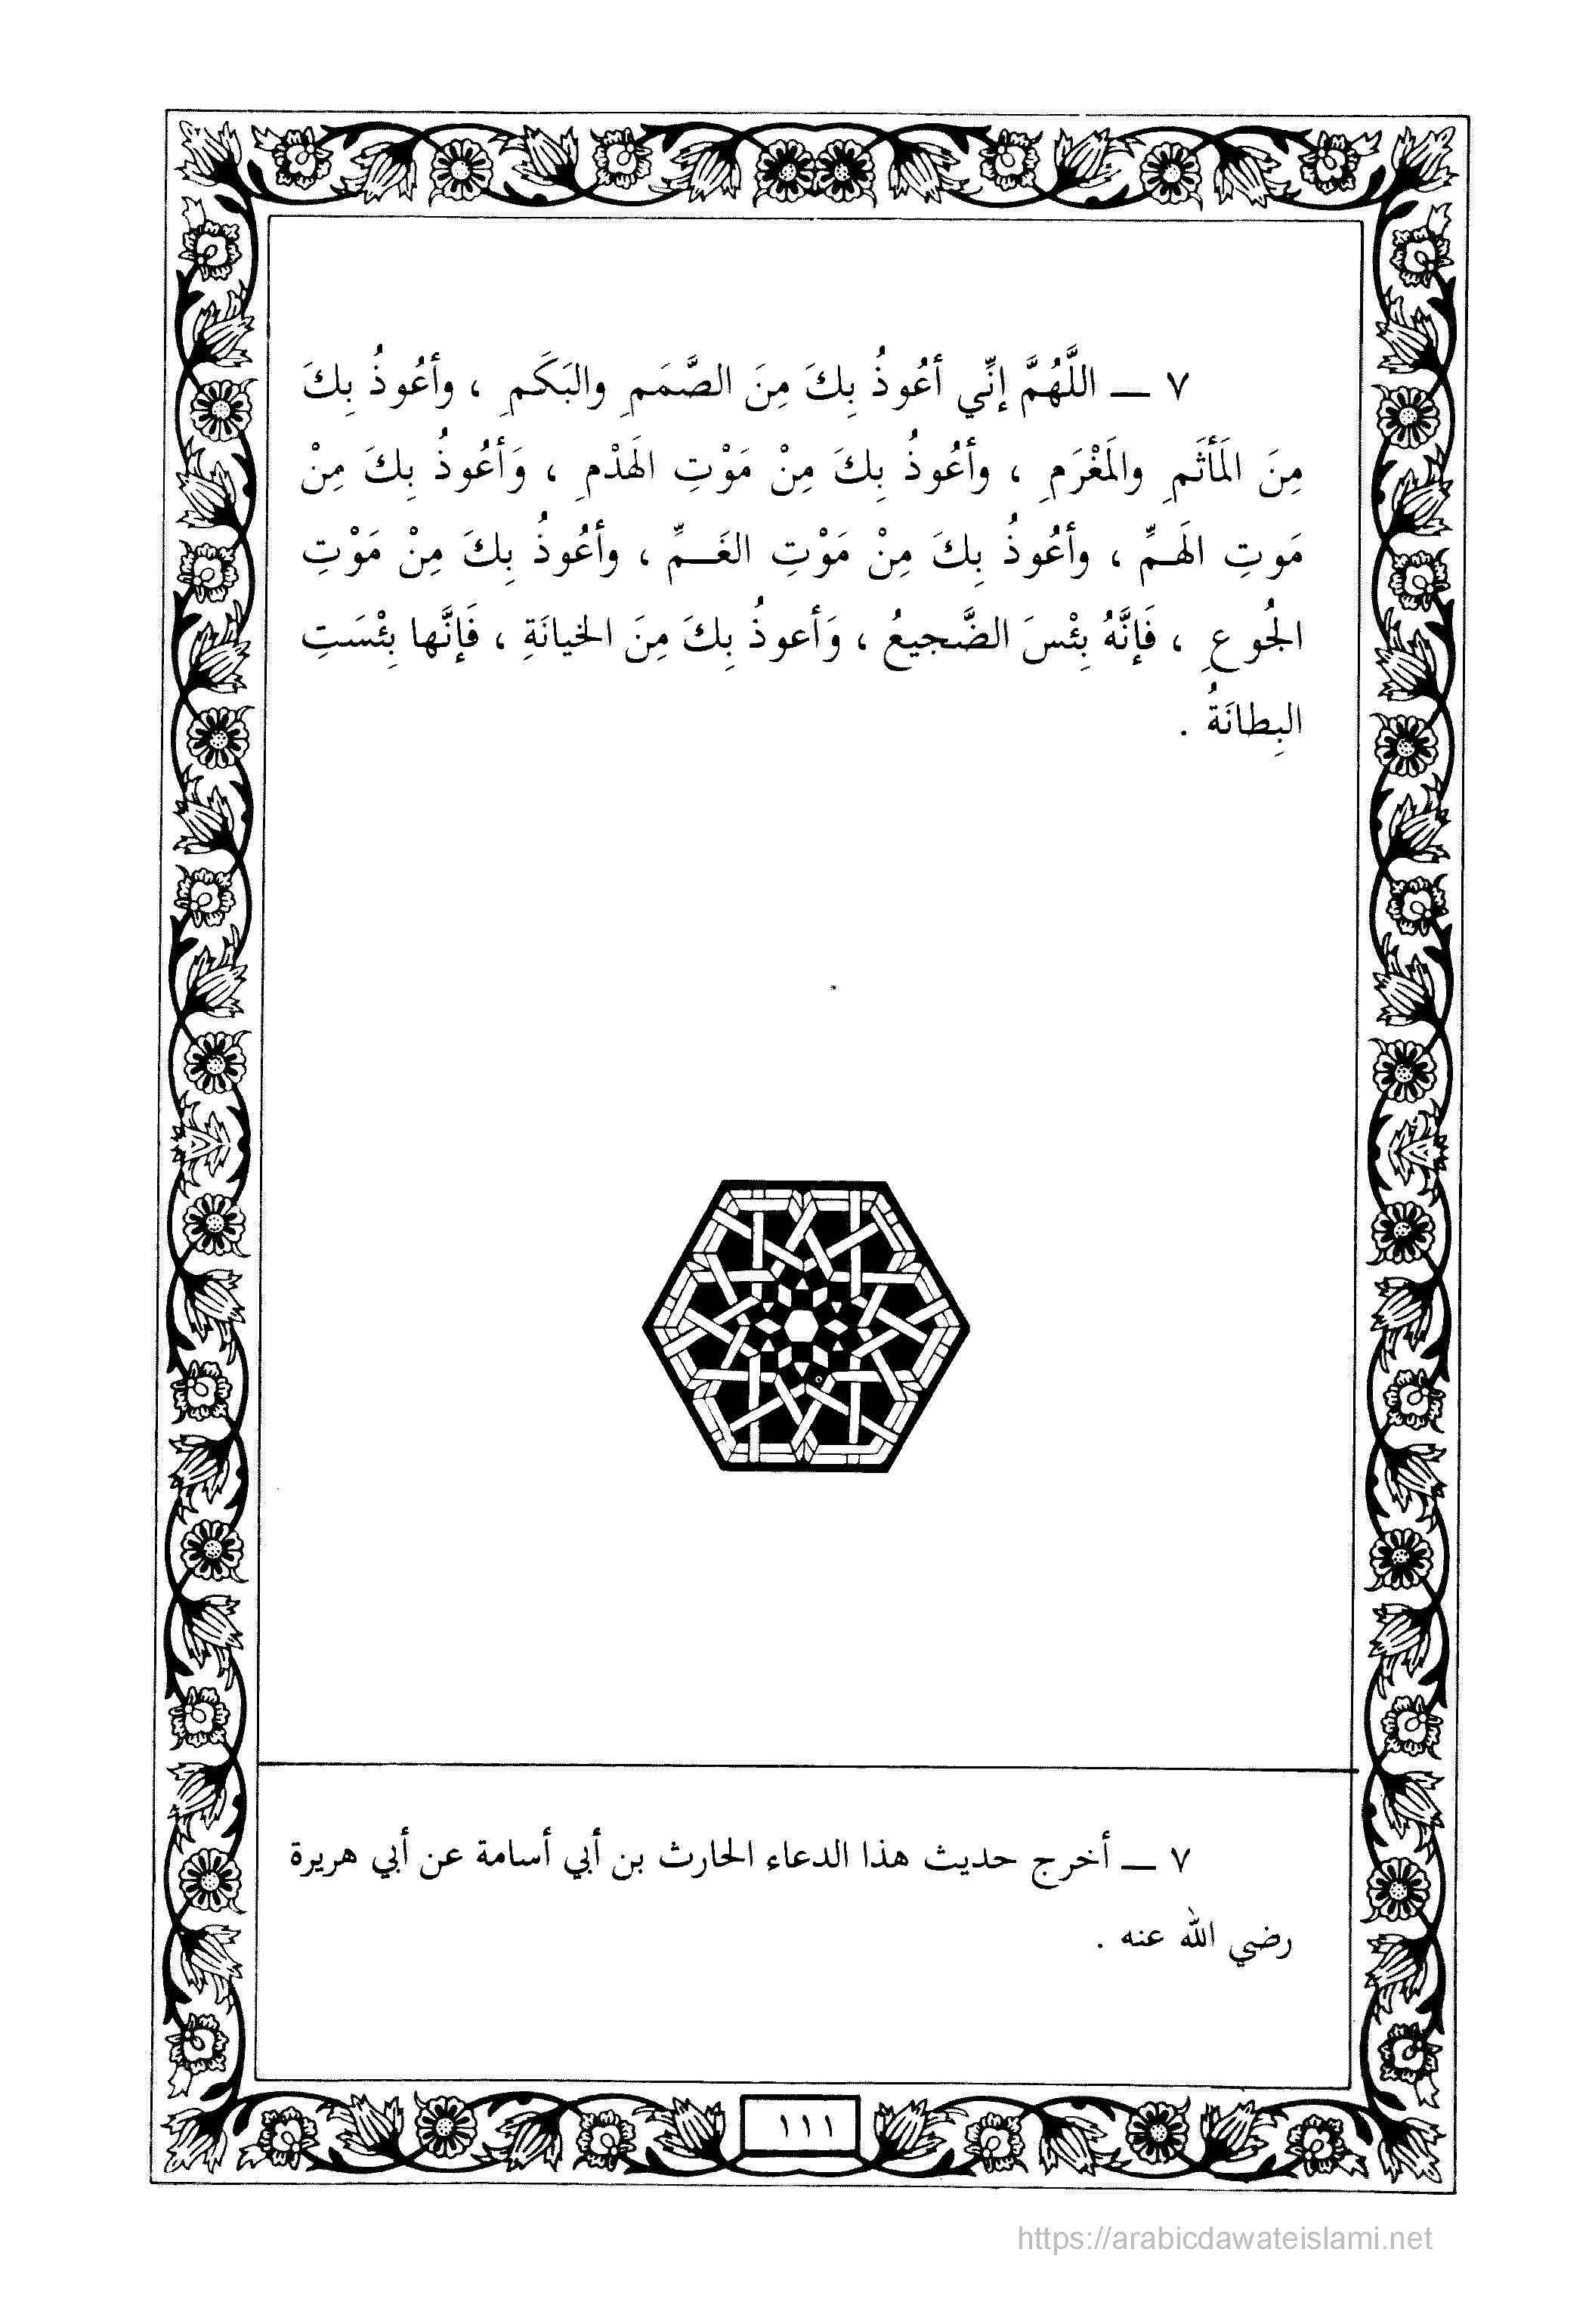 ٧ ــ اللَّهُمَّ إنِّي أعُوذُ بِكَ مِنَ الصَّمَمِ والبَكَمِ ، وأعُوذُ بِكَ
مِنَ المَأثَمِ والمَغْرَمِ ، وأعُوذُ بِكَ مِنْ مَوْتِ الهَدْمِ ، وَأعُوذُ بِكَ مِنْ
مَوتِ الهَمِّ ، وأعُوذُ بِكَ مِنْ مَوْتِ الغَــمِّ ، وأعُوذُ بِكَ مِنْ مَوْتِ
الجُوعِ ، فَإنَّهُ بِئْسَ الضَّجيعُ ، وَأعوذُ بِكَ مِنَ الخيانَةِ ، فَإنَّها بِئْسَتِ
البِطانَةُ .
٧ ــ أخرج حديث هذا الدعاء الحارث بن أبي أسامة عن أبي هريرة
رضي الله عنه .
١١١
https://arabicdawateislami.net